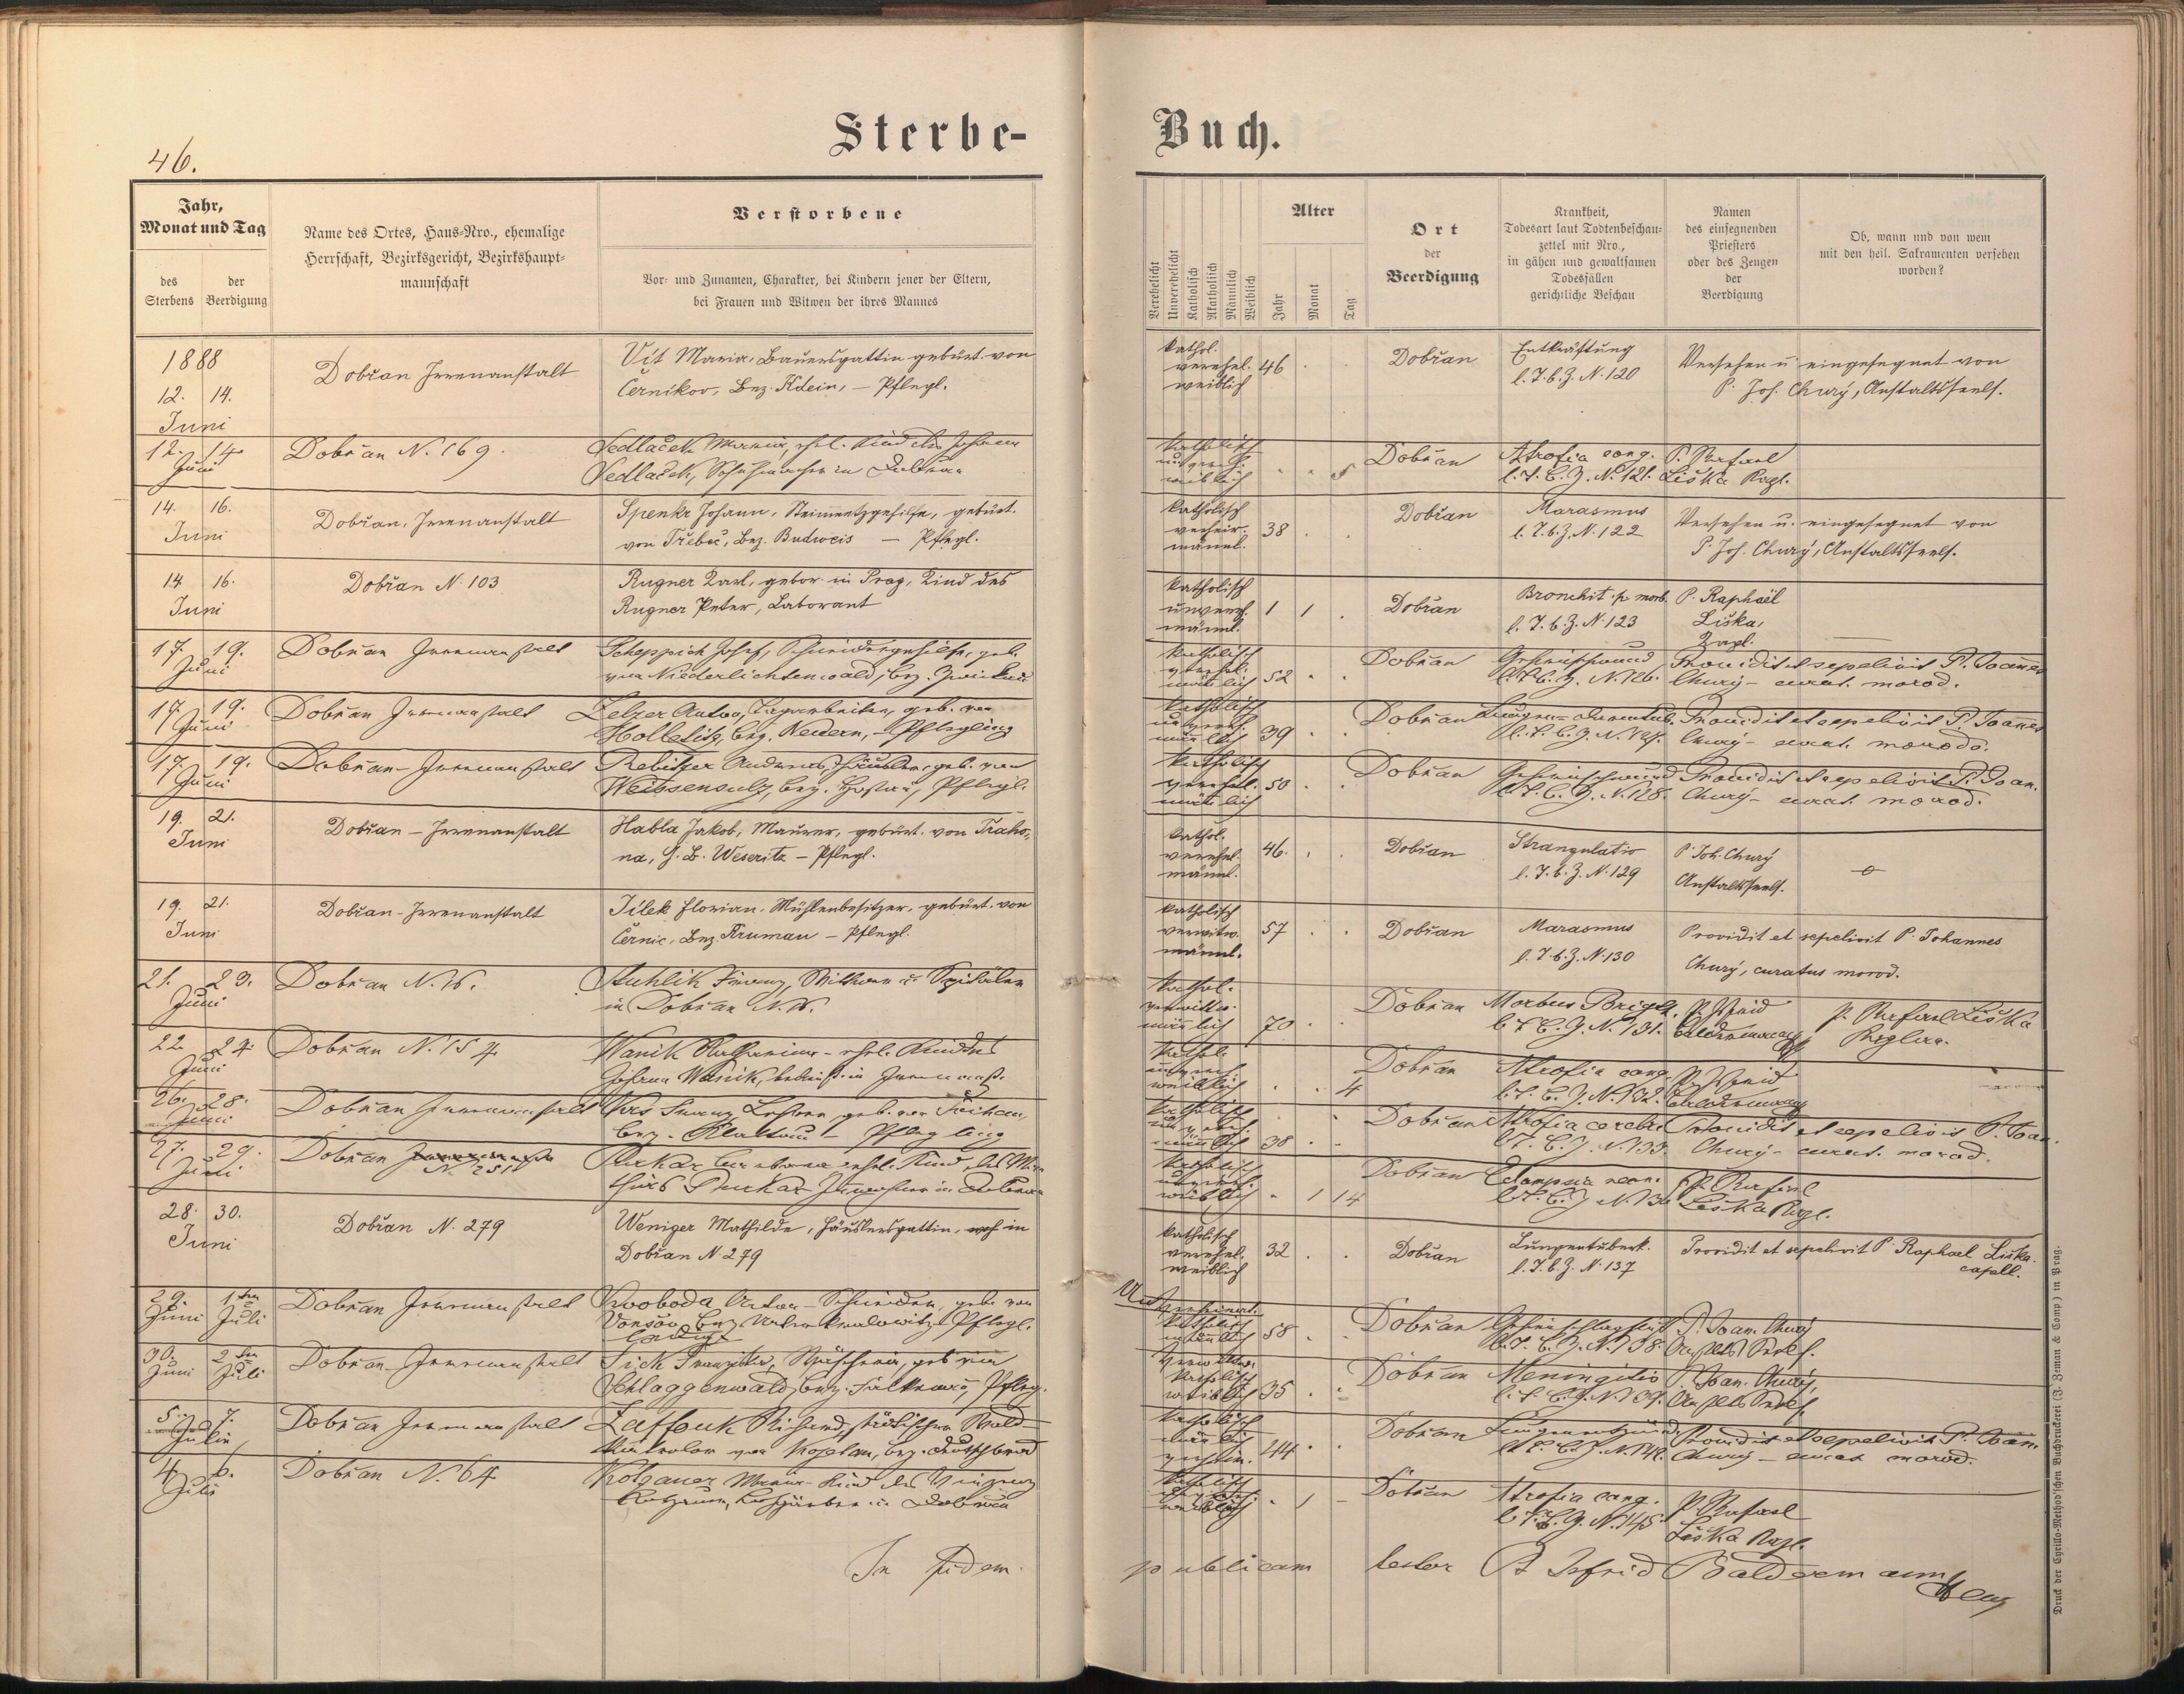 46.
Sterbe-
Buch.
Jahr,
Monat und Tag
des Sterbens
der Beerdigung
Name des Ortes, Haus-Nro., ehemalige
Herrschaft, Bezirksgericht, Bezirkshaupt-
mannschaft
Verstorbene
Vor- und Zunamen, Charakter, bei Kindern jener der Eltern,
bei Frauen und Witwen der ihres Mannes
Verehelicht
Unverehelicht
Katholisch
Akatholisch
Männlich
Weiblich
Alter
Jahr
Monat
Tag
Ort
der
Beerdigung
Krankheit,
Todesart laut Todtenbeschau-
zettel mit Nro.,
in gähen und gewaltsamen
Todesfällen
gerichtliche Beschau
Namen
des einsegnenden
Priesters
oder des Zeugen
der
Beerdigung
Ob, wann und von wem
mit den heil. Sakramenten versehen
worden?
1888
12. 14.
Juni
Dobřan Irrenanstalt
Vít Maria, Bauersgattin gebürt. von
Černikov, Bez. — Pflegl.
kathol.
verehel.
weiblich
46
Dobřan
Entkräftung
l. T. b. Z. N. 120
Versehen u. eingesegnet von
P. Joh. Churý, Anstaltsseels.
12. 14.
Juni
Dobřan N. 169.
Sedlaček Maria, ehel. Kind des Johann
Sedlaček, Schuhmacher in Dobřan
katholisch
weiblich
5
Dobřan
Atrofia cong.
l. T. B. Z. N. 121.
P. Rafael
Liška Kapl.
14. 16.
Juni
Dobřan, Irrenanstalt
Spenkr Johann, Steinmetzgehilfe, gebürt.
von Třebeč, Bez. Budweis — Pflegl.
katholisch
verheir.
männl.
38
Dobřan
Marasmus
l. T. b. Z. N. 122
Versehen u. eingesegnet von
P. Joh. Churý, Anstaltsseels.
14. 16.
Juni
Dobřan N. 103
Rugner Karl, gebor. in Prag, Kind des
Rugner Peter, Laborant
katholisch
unvereh.
männl.
1 1
Dobřan
Bronchit. p. morb.
l. T. b. Z. N. 123
P. Raphaël
Liška,
Kapl.
17. 19.
Juni
Dobřan Irrenanstalt
Scheppich Josef, Schneidergehilfe, geb.
von Niederlichtenwald, Bez.
katholisch
verehel.
männlich
52
Dobřan
Gehirnschwund
l. T. B. Z. N. 126.
Providit et sepelivit P. Joanes
Churý - curat. morod.
17. 19.
Juni
Dobřan Irrenanstalt
Zelzer Anton, Tagarbeiter, geb. von
Holletitz, Bez. — Pflegling
katholisch
männlich
39
Dobřan
l. T. B. Z. N. 127.
Providit et sepelivit P. Joanes
Churý - curat. morodo.
17. 19.
Juni
Dobřan - Irrenanstalt
Rebitzer Andreas, Häusler, geb. von
Weissensulz, Bez. Hostau, Pflegl.
katholisch
verehel.
männlich
50
Dobřan
Gehirnschwund
l. T. B. Z. N. 128.
Providit et sepelivit P. Joan.
Churý - curat. morod.
19. 21.
Juni
Dobřan - Irrenanstalt
Habla Jakob, Maurer, gebürt. von Traho-
na, G. B. Weseritz - Pflegl.
kathol.
verehel.
männl.
46.
Dobřan
Strangulatio
l. T. b. Z. N. 129
P. Joh. Churý
Anstaltsseels.
19. 21.
Juni
Dobřan - Irrenanstalt
Jílek Florian, Mühlenbesitzer, gebürt. von
Černic, Bez. Kruman - Pflegl.
katholisch
verwitw.
männl.
57
Dobřan
Marasmus
l. T. b. Z. N. 130
Providit et sepelivit P. Johannes
Churý, curatus morod.
21. 23.
Juni
Dobřan N. 16.
Franz, Witwer u. Spitäler
in Dobřan
kathol.
männlich
70
Dobřan
Morbus Brigth.
l. T. B. Z. N. 131.
P. Isfrid
Baldermann
P. Rafael Liška
22. 24.
Juni
Dobřan N. 154.
Wanik Katharina - ehel. Kind des
Johann Wanik,
kathol.
weiblich
4
Dobřan
Atrofia cong.
l. T. B. Z. N. 132.
P. Isfrid
Baldermann
26. 28.
Juni
Dobřan Irrenanstalt
Franz, geb. von
Bez. Klattau - Pflegling
katholisch
männlich
38
Dobřan
Atrofia cerebri
l. T. B. Z. N. 133.
Providit et sepelivit P. Joan.
Churý - curat. morod.
27. 29.
Juni
Dobřan
N. 251
ehel. Kind des
in Dobřan
katholisch
weiblich
1 14
Dobřan
l. T. B. Z. N. 136
P. Rafael
Liška Kapl.
28. 30.
Juni
Dobřan N. 279
Weniger Mathilde, Häuslersgattin, in
Dobřan N. 279
katholisch
verehel.
weiblich
32
Dobřan
Lungentuberk.
l. T. b. Z. N. 137
Providit et sepelivit P. Raphael Liška
capell.
29. 1ten
Juni Juli
Dobřan Irrenanstalt
Swoboda Anton - Schneider, geb. von
Bez. Unterkralowitz Pflegl.
ledig
katholisch
männlich
58
Dobřan
Gehirnschlagfluß
l. T. B. Z. N. 138.
P. Joan. Churý
30. 2ten
Juni Juli
Dobřan Irrenanstalt
Fick Franziska, geb. von
Schlaggenwald, Bez. Falkenau, Pfleg.
Verwitw.
katholisch
weiblich
35
Dobřan
Meningitis
l. T. B. Z. N. 139.
P. Joan. Churý,
5. 7.
Juli
Dobřan Irrenanstalt
Richard,
Bez. Deutschbrod
katholisch
männlich
44
Dobřan
Providit et sepelivit P. Joan.
Churý - curat morod.
4. 6.
Juli
Dobřan N. 64
Kotzauer Maria Kind des Vinzenz
in Dobřan
katholisch
weiblich
1
Dobřan
Atrofia cong.
l. T. B. Z. N. 145
P. Rafael
Liška Kapl.
In fidem
publicam testor P. Isfrid Baldermann
Druck der Cyrillo-Method'schen Buchdruckerei (J. Zeman & Comp.) in Prag.